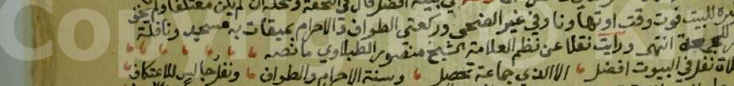 للبيت فوت وقت او تهاونا وفي غير الضحى وركعتي الطواف والاحرام بميقات به مسجد ونافلة
الجمعة انتهى ورايت نقلا عن نظم العلامة الشيخ منصور الطبلاوي ما نصه
صلاة نفل في البيوت افضل الا الذي جماعة تحصل وسنة الاحرام والطواف ونفل جالس للاعتكاف